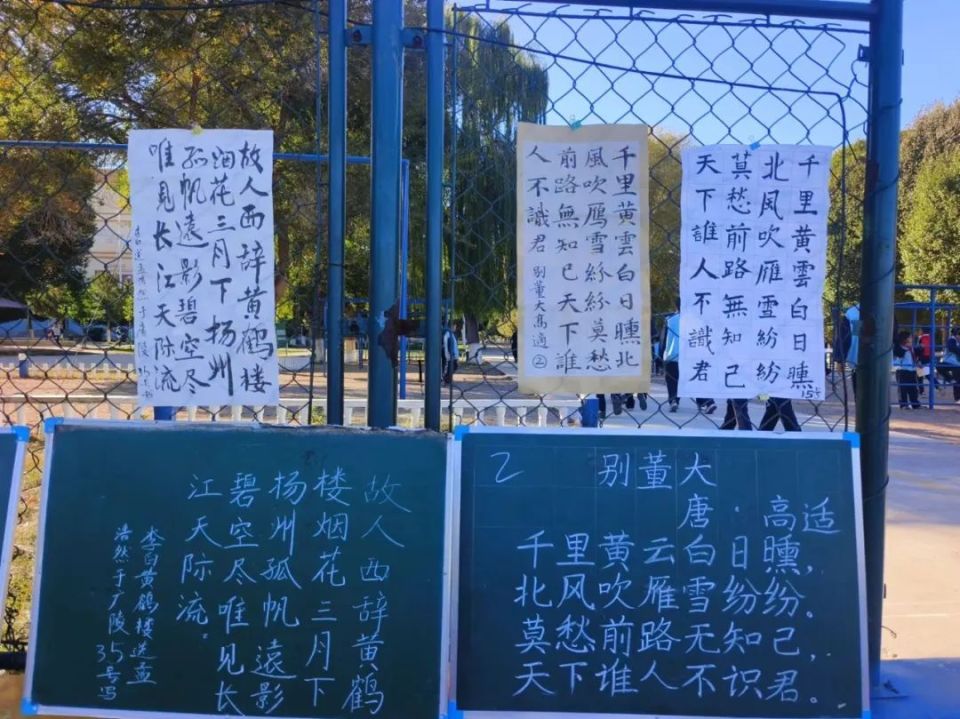 故人西辞黄鹤楼
烟花三月下扬州
孤帆遠影碧空尽
唯見长江天际流
千里黄雲白日曛北
風吹鴈雪紛紛莫愁
前路無知已天下誰
人不識君 别董大高適 ②
千里黄雲白日曛
北风吹雁雪紛紛
莫愁前路無知己
天下誰人不識君
15号
故人西辞黄鹤
楼烟花三月下
扬州孤帆遠影
碧空尽唯见长
江天际流。
李白黄鹤楼送孟
浩然于广陵35号写
2 别董大
唐·高适
千里黄云白日曛，
北风吹雁雪纷纷。
莫愁前路无知己，
天下谁人不识君。